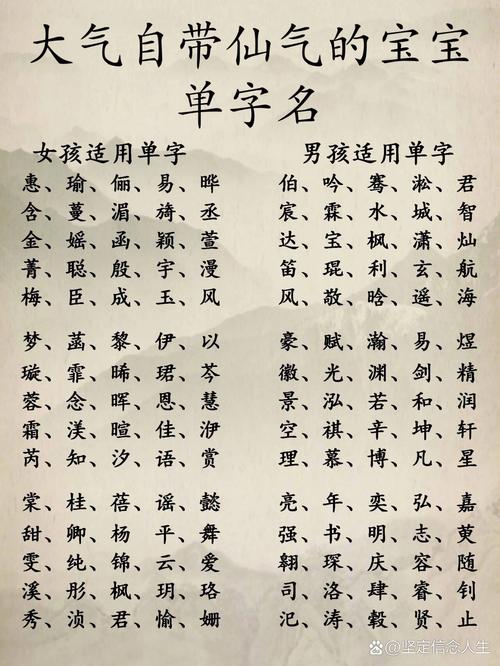 大气自带仙气的宝宝
单字名
女孩适用单字
惠、瑜、俪、易、晔
含、蔓、湄、旖、丞
金、婳、函、颖、萱
菁、聪、殷、宇、漫
梅、臣、成、玉、风
梦、菡、黎、伊、以
璇、霏、晞、珺、芩
蓉、念、晖、恩、慧
霜、渼、暄、佳、洢
芮、知、汐、语、赏
棠、桂、蓓、谣、懿
甜、卿、杨、平、舞
雯、纯、锦、云、爱
溪、彤、枫、玥、珞
秀、浈、君、愉、姗
男孩适用单字
伯、吟、骞、淞、君
宸、霖、水、城、智
达、宝、枫、潇、灿
笛、琨、利、玄、航
风、敬、晗、遥、海
豪、赋、瀚、易、煜
徽、光、渊、剑、精
景、泓、若、和、润
空、祺、辛、坤、轩
理、慕、博、凡、星
亮、年、奕、弘、嘉
强、书、明、志、萸
翱、琛、庆、容、随
司、洛、肆、睿、钊
汜、涛、毂、贤、止
@坚定信念人生